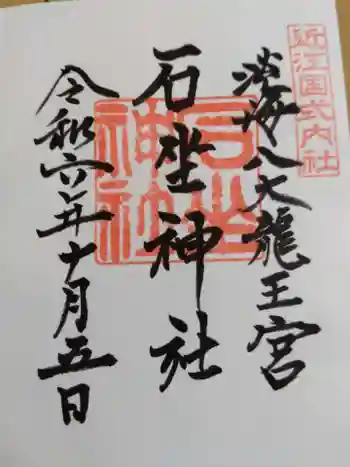 近江国式内社
淡海八大龍王宮
石坐神社
石坐神社
令和六年十月五日